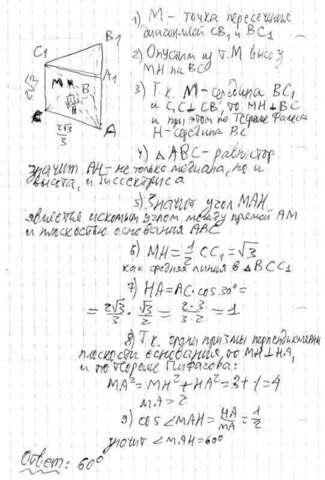 1) М - точка пересечения
диагоналей CB₁ и BC₁
2) Опустим из т.М высоту
MH на BC
3) Т.к. М-середина BC₁
и C₁C ⊥ CB, то MH ⊥ BC
и при этом по Теореме Фалеса
H-середина BC
4) △ABC - равностор
значит AH- не только медиана, но и
высота, и биссектриса
5) Значит угол MAH
является искомым углом между прямой AM
и плоскостью основания ABC
6) MH = 1/2 CC₁ = √3
как средняя линия в △BCC₁
7) HA = AC · cos 30° =
= 2√3/3 · √3/2 = 2·3/3·2 = 1
8) Т.к. грани призмы перпендикулярны
плоскости основания, то MH ⊥ HA,
и по теореме Пифагора:
MA² = MH² + HA² = 3+1 = 4
MA = 2
9) cos ∠MAH = HA/MA = 1/2
значит ∠MAH = 60°
Ответ: 60°
B₁
C₁
A₁
2√3
M
B
H
C
A
2√3/3